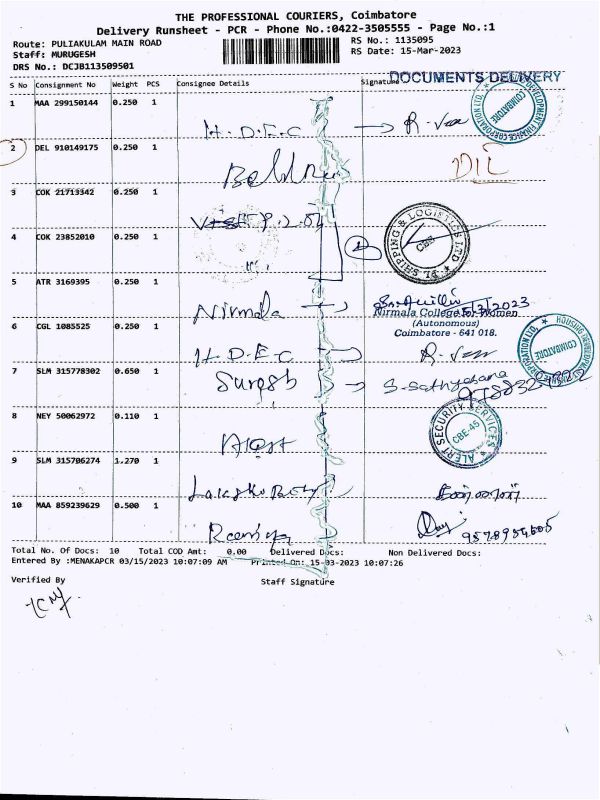 THE PROFESSIONAL COURIERS, Coimbatore
Delivery Runsheet - PCR - Phone No.:0422-3505555 - Page No.:1
Route: PULIAKULAM MAIN ROAD RS No.: 1135095
Staff: MURUGESH RS Date: 15-Mar-2023
DRS No.: DCJB113509501
DOCUMENTS DELIVERY
S No Consignment No Weight PCS Consignee Details Signature
1 MAA 299150144 0.250 1
H.D.F.C R. Ven
HOUSING DEVELOPMENT FINANCE CORPORATION LTD. ★ COIMBATORE
2 DEL 910149175 0.250 1
3 COK 21713342 0.250 1
4 COK 23852010 0.250 1
SHIPPING & LOGISTICS LTD ★ CBE
5 ATR 3169395 0.250 1
Nirmala 15/3/2023
Nirmala College for Women
(Autonomous)
Coimbatore - 641 018.
6 CGL 1085525 0.250 1
H.D.F.C R. Ven
HOUSING DEVELOPMENT FINANCE CORPORATION LTD. ★ COIMBATORE
7 SLM 315778302 0.650 1
Suresh S. Sathyabama
8 NEY 50062972 0.110 1
Alert
★ ALERT SECURITY SERVICES CBE-45
9 SLM 315706274 1.270 1
10 MAA 859239629 0.500 1
Ramya
Total No. Of Docs: 10 Total COD Amt: 0.00 Delivered Docs: Non Delivered Docs:
Entered By :MENAKAPCR 03/15/2023 10:07:09 AM Printed On: 15-03-2023 10:07:26
Verified By Staff Signature